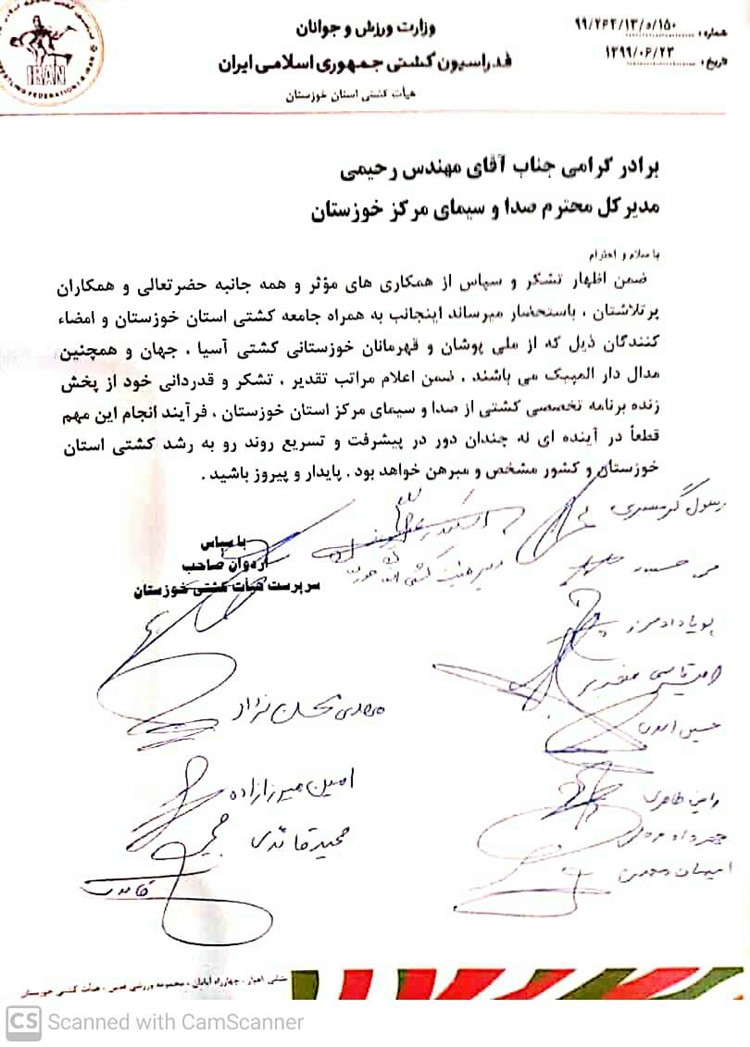 وزارت ورزش و جوانان
فدراسیون کشتی جمهوری اسلامی ایران
هیأت کشتی استان خوزستان
شماره: ۹۹/۲۶۲/۱۳/۵/۱۵۰
تاریخ: ۱۳۹۹/۰۶/۲۳
IRAN
برادر گرامی جناب آقای مهندس رحیمی
مدیر کل محترم صدا و سیمای مرکز خوزستان
با سلام و احترام
ضمن اظهار تشکر و سپاس از همکاری های مؤثر و همه جانبه حضرتعالی و همکاران
پرتلاشتان ، باستحضار میرساند اینجانب به همراه جامعه کشتی استان خوزستان و امضاء
کنندگان ذیل که از ملی پوشان و قهرمانان خوزستانی کشتی آسیا ، جهان و همچنین
مدال دار المپیک می باشند ، ضمن اعلام مراتب تقدیر ، تشکر و قدردانی خود از پخش
زنده برنامه تخصصی کشتی از صدا و سیمای مرکز استان خوزستان ، فرآیند انجام این مهم
قطعاً در آینده ای نه چندان دور در پیشرفت و تسریع روند رو به رشد کشتی استان
خوزستان و کشور مشخص و مبرهن خواهد بود . پایدار و پیروز باشید .
رسول گرمسیری
با سپاس
اردوان صاحب
سرپرست هیأت کشتی خوزستان
پویا دادمرز
مهدی محسن نژاد
رامین طاهری
امین میرزازاده
مجید قائدی
نشانی: اهواز ، چهارراه آبادان ، مجموعه ورزشی قدس ، هیأت کشتی خوزستان
CS Scanned with CamScanner